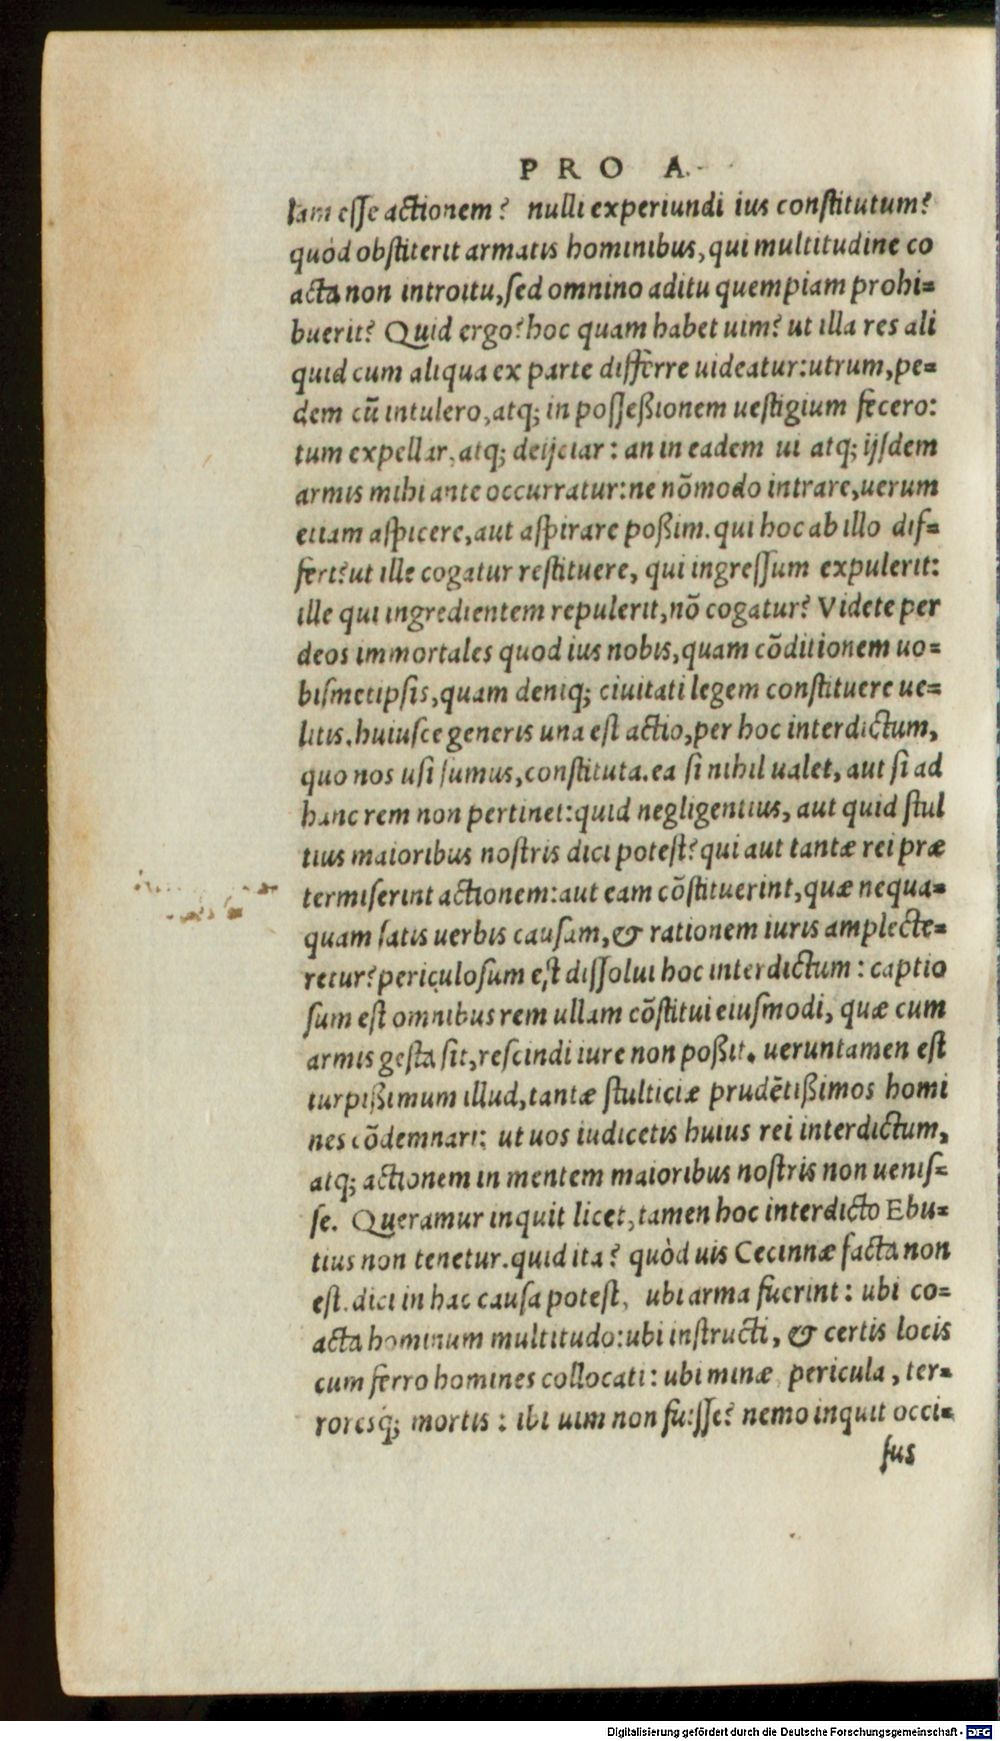 PRO A.
lam esse actionem? nulli experiundi ius constitutum?
quòd obstiterit armatis hominibus, qui multitudine co
acta non introitu, sed omnino aditu quempiam prohi=
buerit? Quid ergo? hoc quam habet uim? ut illa res ali
quid cum aliqua ex parte differre uideatur: utrum, pe=
dem cū intulero, atq; in posseßionem uestigium fecero:
tum expellar, atq; deijciar: an in eadem ui atq; ijsdem
armis mihi ante occurratur: ne nōmodo intrare, uerum
etiam aspicere, aut aspirare poßim. qui hoc ab illo dif=
fert? ut ille cogatur restituere, qui ingressum expulerit:
ille qui ingredientem repulerit, nō cogatur? Videte per
deos immortales quod ius nobis, quam cōditionem uo=
bismetipsis, quam deniq; ciuitati legem constituere ue=
litis. huiusce generis una est actio, per hoc interdictum,
quo nos usi sumus, constituta. ea si nihil ualet, aut si ad
hanc rem non pertinet: quid negligentius, aut quid stul
tius maioribus nostris dici potest? qui aut tantæ rei præ
termiserint actionem: aut eam cōstituerint, quæ nequa=
quam satis uerbis causam, & rationem iuris amplecte=
retur? periculosum est dissolui hoc interdictum: captio
sum est omnibus rem ullam cōstitui eiusmodi, quæ cum
armis gesta sit, rescindi iure non poßit. ueruntamen est
turpißimum illud, tantæ stulticiæ prudētißimos homi
nes cōdemnari: ut uos iudicetis huius rei interdictum,
atq; actionem in mentem maioribus nostris non uenis=
se. Queramur inquit licet, tamen hoc interdicto Ebu=
tius non tenetur. quid ita? quòd uis Cecinnæ facta non
est. dici in hac causa potest, ubi arma fuerint: ubi co=
acta hominum multitudo: ubi instructi, & certis locis
cum ferro homines collocati: ubi minæ, pericula, ter=
roresq́; mortis: ibi uim non fuisse? nemo inquit occi=
sus
Digitalisierung gefördert durch die Deutsche Forschungsgemeinschaft - DFG